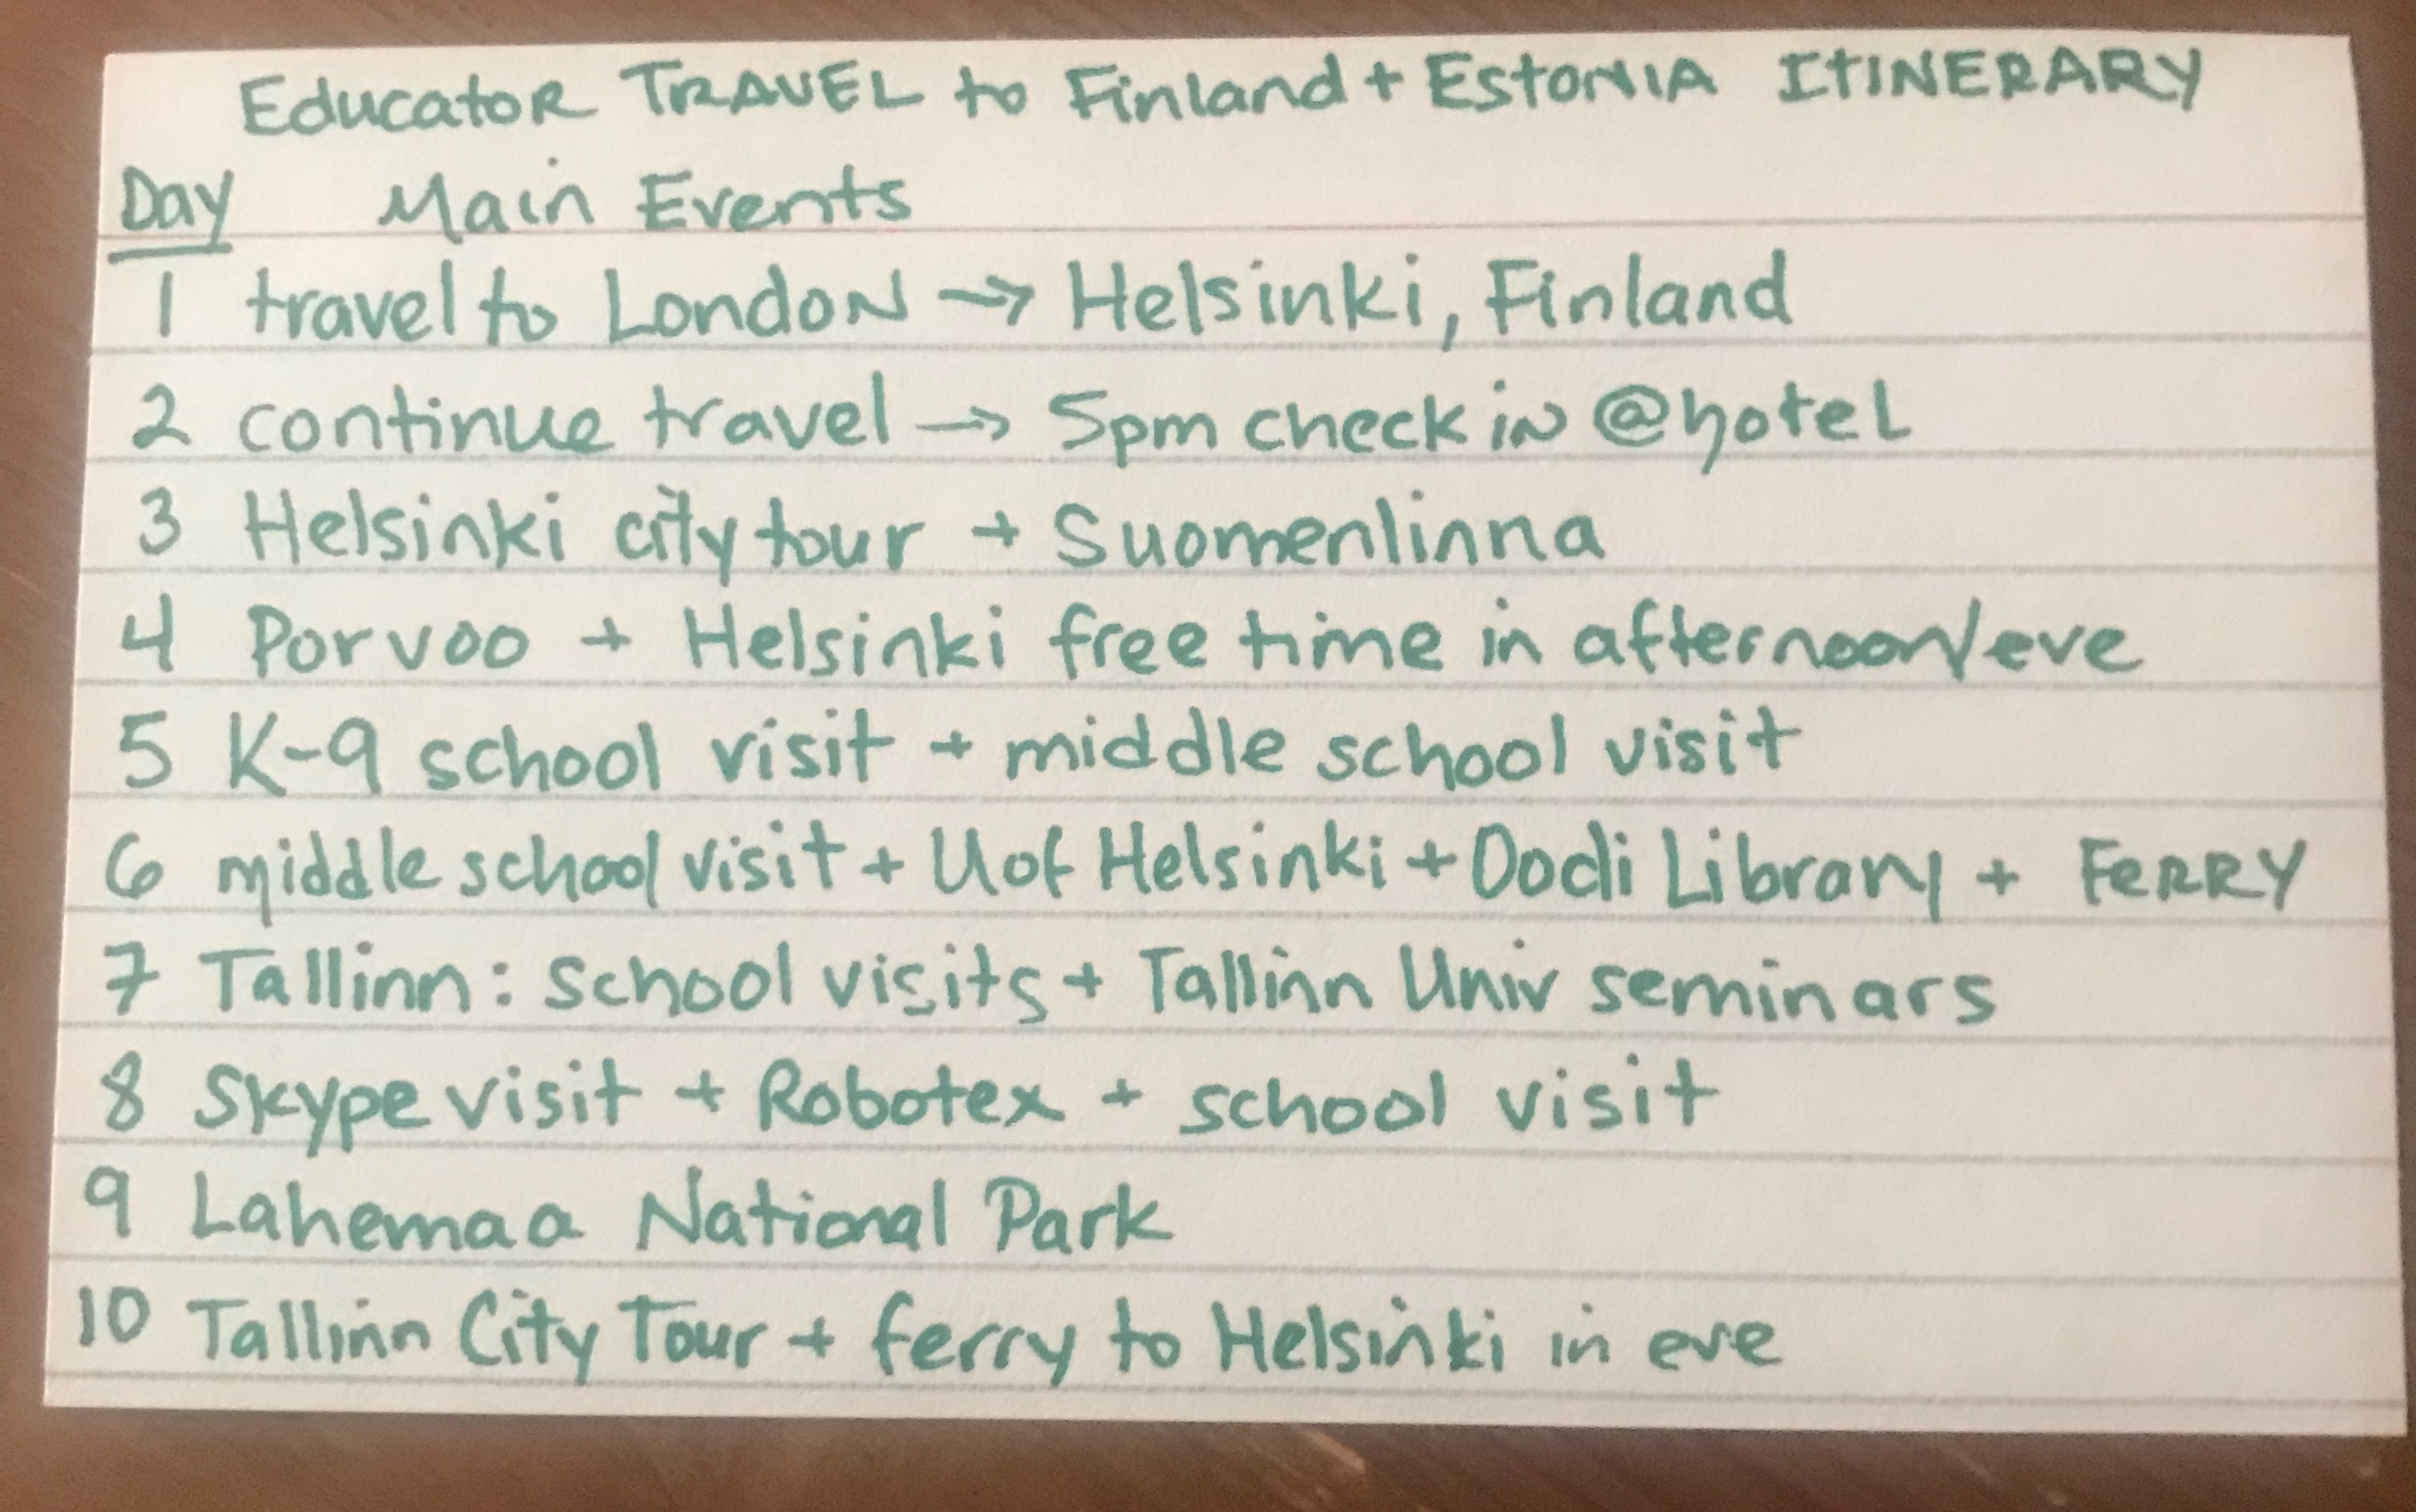 Educator TRAVEL to Finland + Estonia ITINERARY
Day Main Events
1 travel to London → Helsinki, Finland
2 continue travel → 5pm check in @hotel
3 Helsinki city tour + Suomenlinna
4 Porvoo + Helsinki free time in afternoon/eve
5 K-9 school visit + middle school visit
6 middle school visit + U of Helsinki + Oodi Library + FERRY
7 Tallinn: School visits + Tallinn Univ seminars
8 Skype visit + Robotex + school visit
9 Lahemaa National Park
10 Tallinn City Tour + ferry to Helsinki in eve